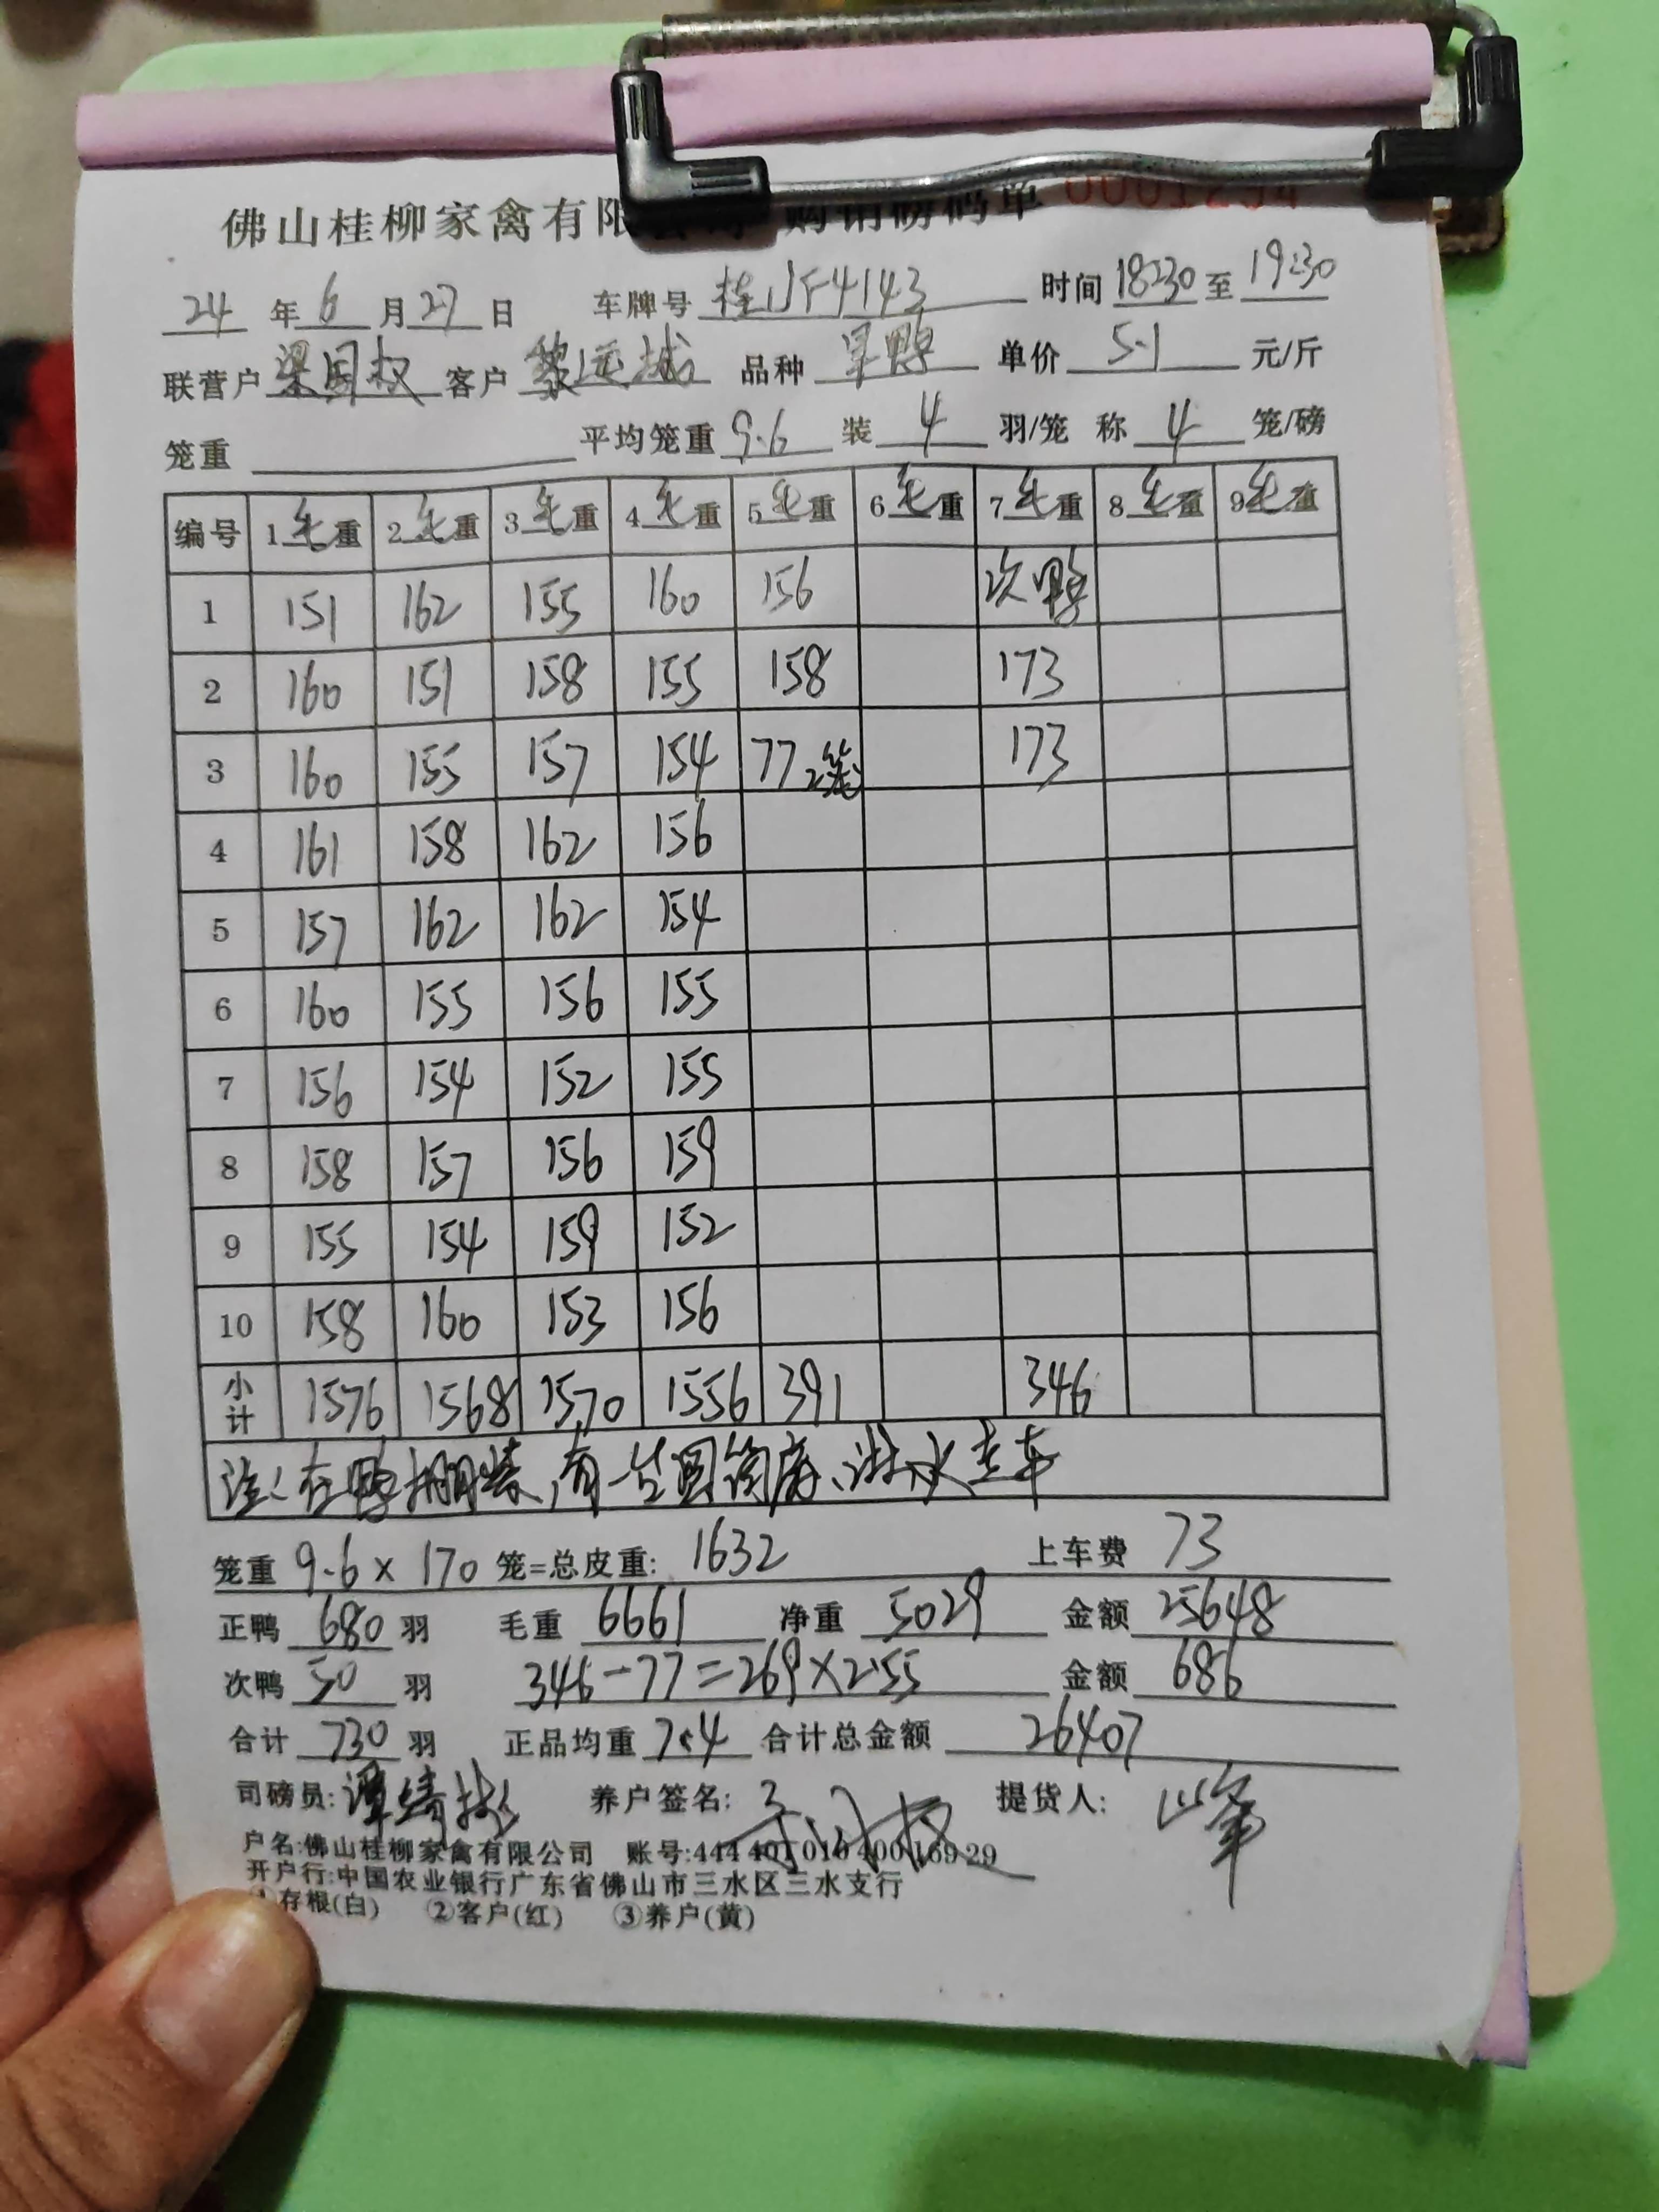 佛山桂柳家禽有限 购销磅码单 0001234
24 年 6 月 27 日 车牌号 桂JF4143 时间 18:30 至 19:30
联营户 梁国权 客户 黎运城 品种 旱鸭 单价 5.1 元/斤
笼重 平均笼重 9.6 装 4 羽/笼 称 4 笼/磅
编号 1毛重 2毛重 3毛重 4毛重 5毛重 6毛重 7毛重 8毛重 9毛重
1 151 162 155 160 156 次鸭
2 160 151 158 155 158 173
3 160 155 157 154 77 2笼 173
4 161 158 162 156
5 157 162 162 154
6 160 155 156 155
7 156 154 152 155
8 158 157 156 159
9 155 154 159 152
10 158 160 153 156
小计 1576 1568 1570 1556 391 346
注:在鸭棚装,有一台圆筒磨、淋水走车
笼重 9.6 × 170 笼=总皮重: 1632 上车费 73
正鸭 680 羽 毛重 6661 净重 5029 金额 25648
次鸭 50 羽 346-77=269×2.55 金额 686
合计 730 羽 正品均重 7.4 合计总金额 26407
司磅员: 谭 养户签名: 提货人:
户名:佛山桂柳家禽有限公司 账号:444 401 010 400 169 29
开户行:中国农业银行广东省佛山市三水区三水支行
①存根(白) ②客户(红) ③养户(黄)